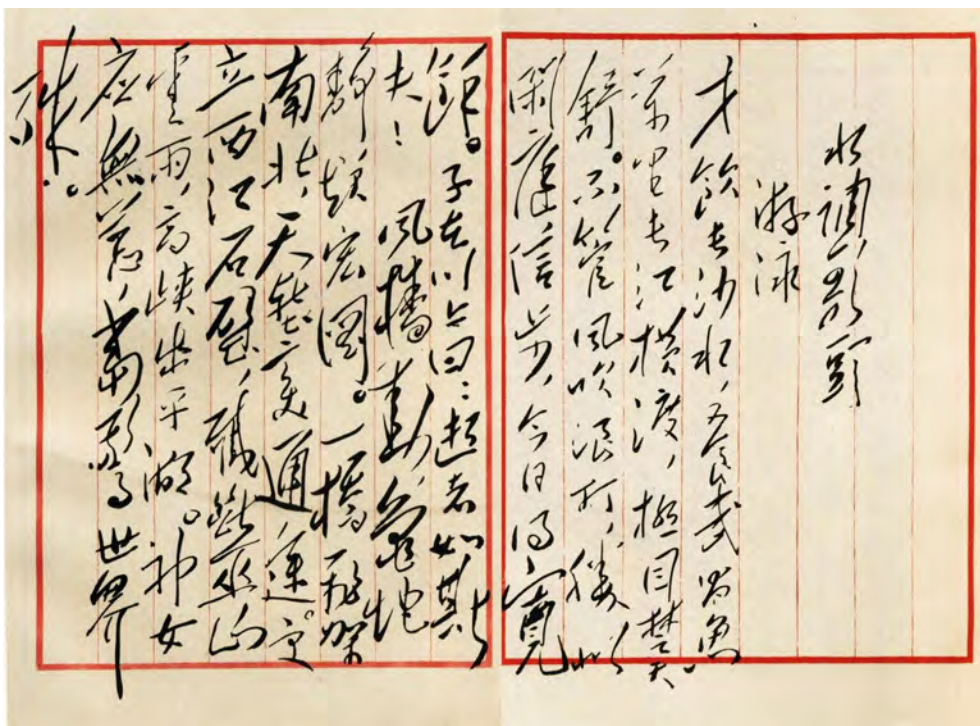 水調歌頭
游泳
才飲長沙水,又食武昌魚
萬里長江橫渡,極目楚天
舒。不管風吹浪打,勝似
閑庭信步,今日得寬
餘。子在川上曰:逝者如斯
夫!風檣動,龜蛇
靜,起宏圖。一橋飛架
南北,天塹變通途。更
立西江石壁,截斷巫山
雲雨,高峽出平湖。神女
應無恙,當驚世界
殊。